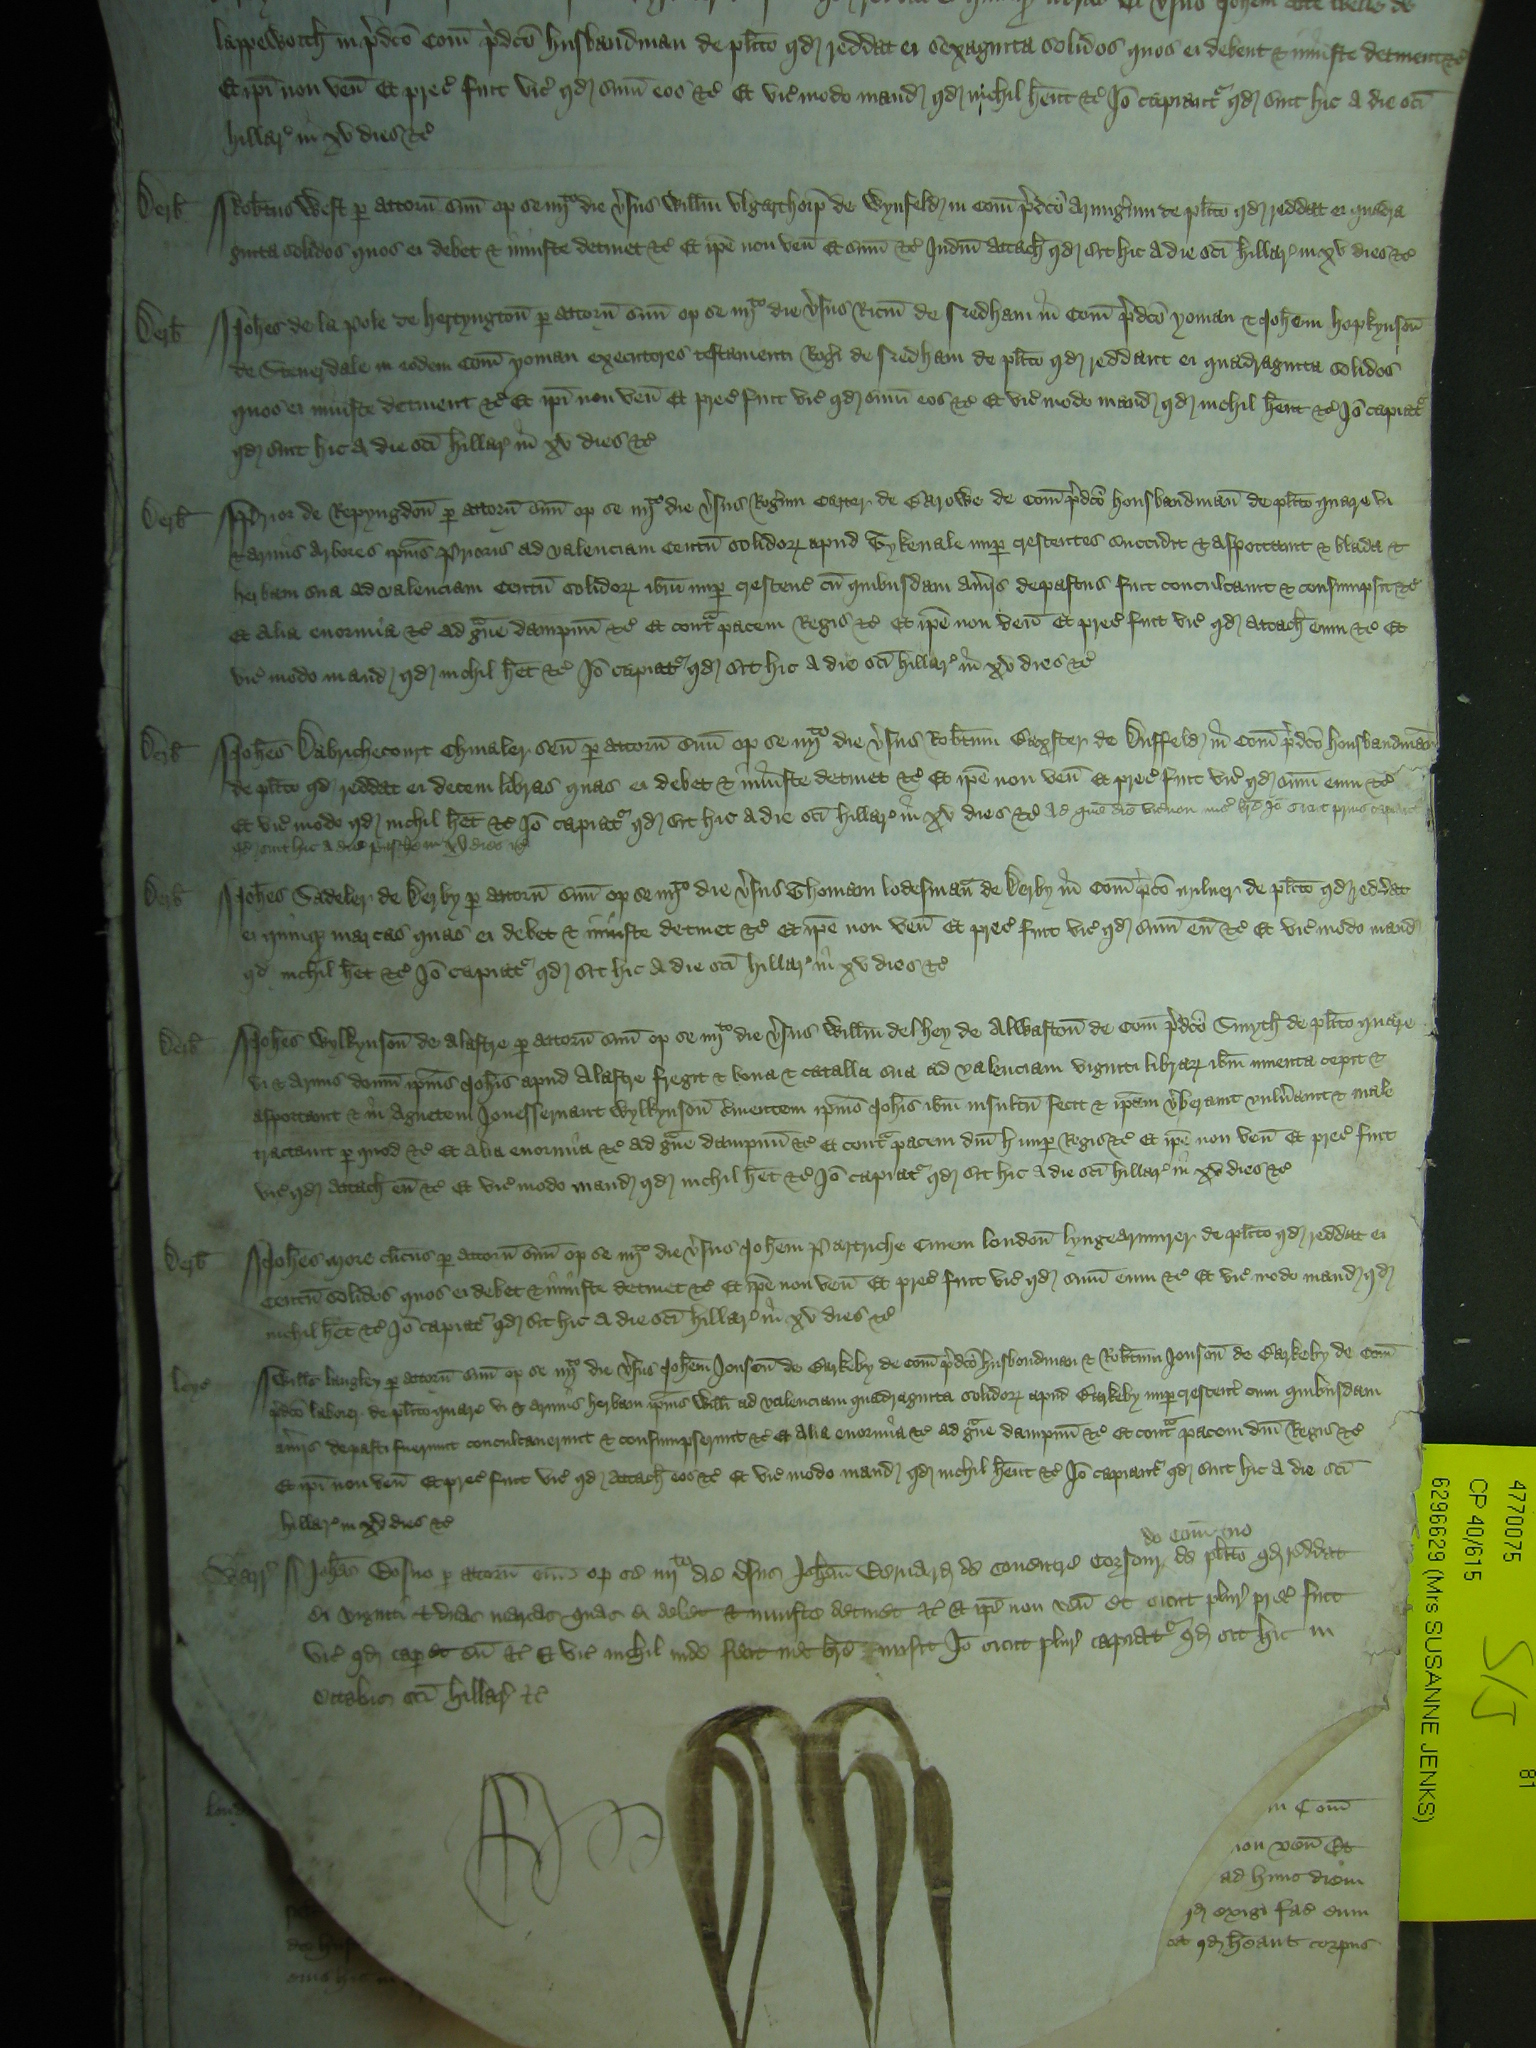 lappeworth in p̄dcō Com̄ p̄dcō husbandman de pl̄ito qd reddat ei sexaginta solidos quos ei debent & iniuste detinent &c̄
Et ip̄i non ven̄ Et prec̄ fuit vic̄ qd sum̄ eos &c̄ Et vic̄ modo mand qd nichil hēnt &c̄ Iō capiant̄ qd sint hic A die sc̄i
hillar̄ in xv dies &c̄
Derb̄ Rob̄tus West p attorn̄ suū op se iiijto die v̄sus Willm̄ Vlgarthorp de Wynfeld in Com̄ p̄dcō Armiḡum de pl̄ito qd reddat ei quadra
ginta solidos quos ei debet & iniuste detinet &c̄ Et ip̄e non ven̄ Et sum̄ &c̄ Iudm̄ attach qd sit hic A die sc̄i hillar̄ in xv dies &c̄
Derb̄ Joh̄es de la Pole de hertyngton̄ p attorn̄ suū op se iiijto die v̄sus Ricm̄ de ffredham in Com̄ p̄dcō yoman & Joh̄em hopkynson̄
de Stenerdale in eodem Com̄ yoman executores testamenti Roḡi de ffredham de pl̄ito qd reddant ei quadraginta solidos
quos ei iniuste detinent &c̄ Et ip̄i non ven̄ Et prec̄ fuit vic̄ qd sum̄ eos &c̄ Et vic̄ modo mand qd nichil hēnt &c̄ Iō capiat̄
qd sint hic A die sc̄i hillar̄ in xv dies &c̄
Derb̄ Prior de Repyngdon̄ p attorn̄ suū op se iiijto die v̄sus Roḡum Carter de Barowe de Com̄ p̄dcō housbandman̄ de pl̄ito quare vi
& armis Arbores ip̄ius Prioris ad valenciam Centū solidor̄ apud Tykenale nup crescentes succidit & asportauit & blada &
herbam sua ad valenciam Centū solidor̄ ibm̄ nup crescenc̄ cū quibusdam Au̅iis depastus fuit conculcauit & consumpsit &c̄
Et Alia enormia &c̄ ad g̃ue dampnū &c̄ Et cont̃ pacem Regis &c̄ Et ip̄e non ven̄ Et prec̄ fuit vic̄ qd Attach eum &c̄ Et
vic̄ modo mand qd nichil hēt &c̄ Iō capiat̄ qd sit hic A die sc̄i hillar̄ in xv dies &c̄
Derb̄ Joh̄es Dabrichecourt Chiualer sen̄ p attorn̄ suū op se iiijto die v̄sus Rob̄tum Baxster de Duffeld in Com̄ p̄dcō housbandman̄
de pl̄ito qd reddat ei decem libras quas ei debet & iniuste detinet &c̄ Et ip̄e non ven̄ Et prec̄ fuit vic̄ qd sum̄ eum &c̄
Et vic̄ modo qd nichil hēt &c̄ Iō capiat̄ qd sit hic A die sc̄i hillar̄ in xv dies &c̄ Ad quē diē vic non mis̄ br̄e Iō sicut prius capiat̄
qd sit hic A die pasche in xv dies &c̄
Derb̄ Joh̄es Sadeler de Derby p attorn̄ suū op se iiijto die v̄sus Thomam lodesman̄ de Derby in Com̄ p̄dcō milner de pl̄ito qd reddat
ei quinq marcas quas ei debet & iniuste detinet &c̄ Et ip̄e non ven̄ Et prec̄ fuit vic̄ qd sum̄ eū &c̄ Et vic̄ modo mand
qd nichil hēt &c̄ Iō capiat̄ qd sit hic A die sc̄i hillar̄ in xv dies &c̄
Derb̄ Joh̄es Wylkynson̄ de Alastre p attorn̄ suū op se iiijto die v̄sus Willm̄ delhey de Alwaston̄ de Com̄ p̄dcō Smyth de pl̄ito quare
vi & armis domū ip̄ius Joh̄is apud Alastre fregit & bona & catalla sua ad valenciam viginti librar̄ ibm̄ inuenta cepit &
asportauit & in Agnetem Jonesseruant Wylkynson̄ s̄uientem ip̄ius Joh̄is ibm̄ insultū fecit & ip̄am v̄berauit vuln̄auit & male
tractauit p quod &c̄ Et Alia enormia &c̄ ad g̃ue dampnū &c̄ Et cont̃ pacem dn̄i h nup Regis &c̄ Et ip̄e non ven̄ Et prec̄ fuit
vic̄ qd Attach eū &c̄ Et vic̄ modo mand qd nichil hēt &c̄ Iō capiat̄ qd sit hic A die sc̄i hillar̄ in xv dies &c̄
Derb̄ Joh̄es more cl̄icus p attorn̄ suū op se iiijto die v̄sus Joh̄em Partriche Ciuem london̄ lyngearmurer de pl̄ito qd reddat ei
Centū solidos quos ei debet & iniuste detinet &c̄ Et ip̄e non ven̄ Et prec̄ fuit vic̄ qd sum̄ eum &c̄ Et vic̄ modo mand qd
nichil hēt &c̄ Iō capiat̄ qd sit hic A die sc̄i hillar̄ in xv dies &c̄
leyc̄ Willm̄s langley p attorn̄ suū op se iiijto die v̄sus Joh̄em Jonson̄ de Barkeby de Com̄ p̄dcō husbondman & Rob̄tum Jonson̄ de Barkeby de Com̄
p̄dcō laborer de pl̄ito quare vi & armis herbam ip̄ius Willi̅ ad valenciam quadraginta solidor̄ apud Barkeby nup crescent̄ cum quibusdam
au̅iis depasti fuerunt conculcauerunt & consumpserunt &c̄ Et Alia enormia &c̄ ad g̃ue dampnū &c̄ Et cont̃ pacem dn̄i Regis &c̄
Et ip̄i non ven̄ Et prec̄ fuit vic̄ qd Attach eos &c̄ Et vic̄ modo mand qd nichil hēnt &c̄ Iō capiant̄ qd sint hic A die sc̄i
hillar̄ in xv dies &c̄
de Com̄
Warr̄ Joh̄es p attorn̄ suū op se iiijto die v̄sus Joh̄em Bernard de Couentre Corsour de pl̄ito qd reddat
ei viginti & duas marcas quas ei debet & iniuste detinet &c̄ Et ip̄e non ven̄ Et sicut plur̄ prec̄ fuit
vic̄ qd cap et sū &c̄ Et vic̄ nichil inde fecit nec br̄e misit Iō sicut plur̄ capiat̄ qd sit hic in
Octabis sc̄i hillar̄ &c̄
lond
in Com̄
non ven̄ Et
ad hunc diem
qd exigi fac eum
et qd hēant corpus
4770075 81
CP 40/615 S/J
6296629 (Mrs SUSANNE JENKS)